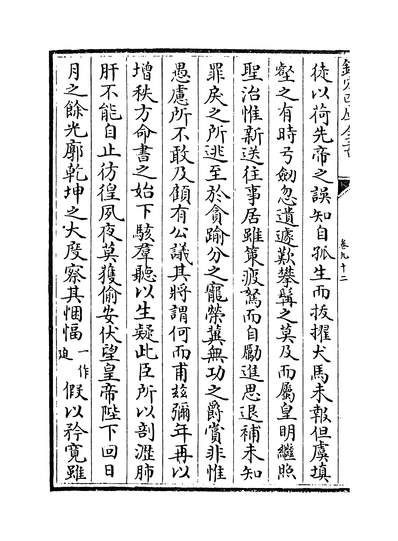 欽定四庫全書
卷九十二
徒以荷先帝之誤知自孤生而拔擢犬馬未報但虞填
壑之有時弓劒忽遺遽歎攀髯之莫及而屬皇明繼照
聖治惟新送往事居雖策疲駑而自勵進思退補未知
罪戾之所逃至於貪踰分之寵榮冀無功之爵賞非惟
愚慮所不敢及顧有公議其將謂何而甫兹彌年再以
增秩方命書之始下駭羣聽以生疑此臣所以剖瀝肺
肝不能自止彷徨夙夜莫獲偷安伏望皇帝陛下回日
月之餘光廓乾坤之大度察其悃愊一作迫假以矜寛雖